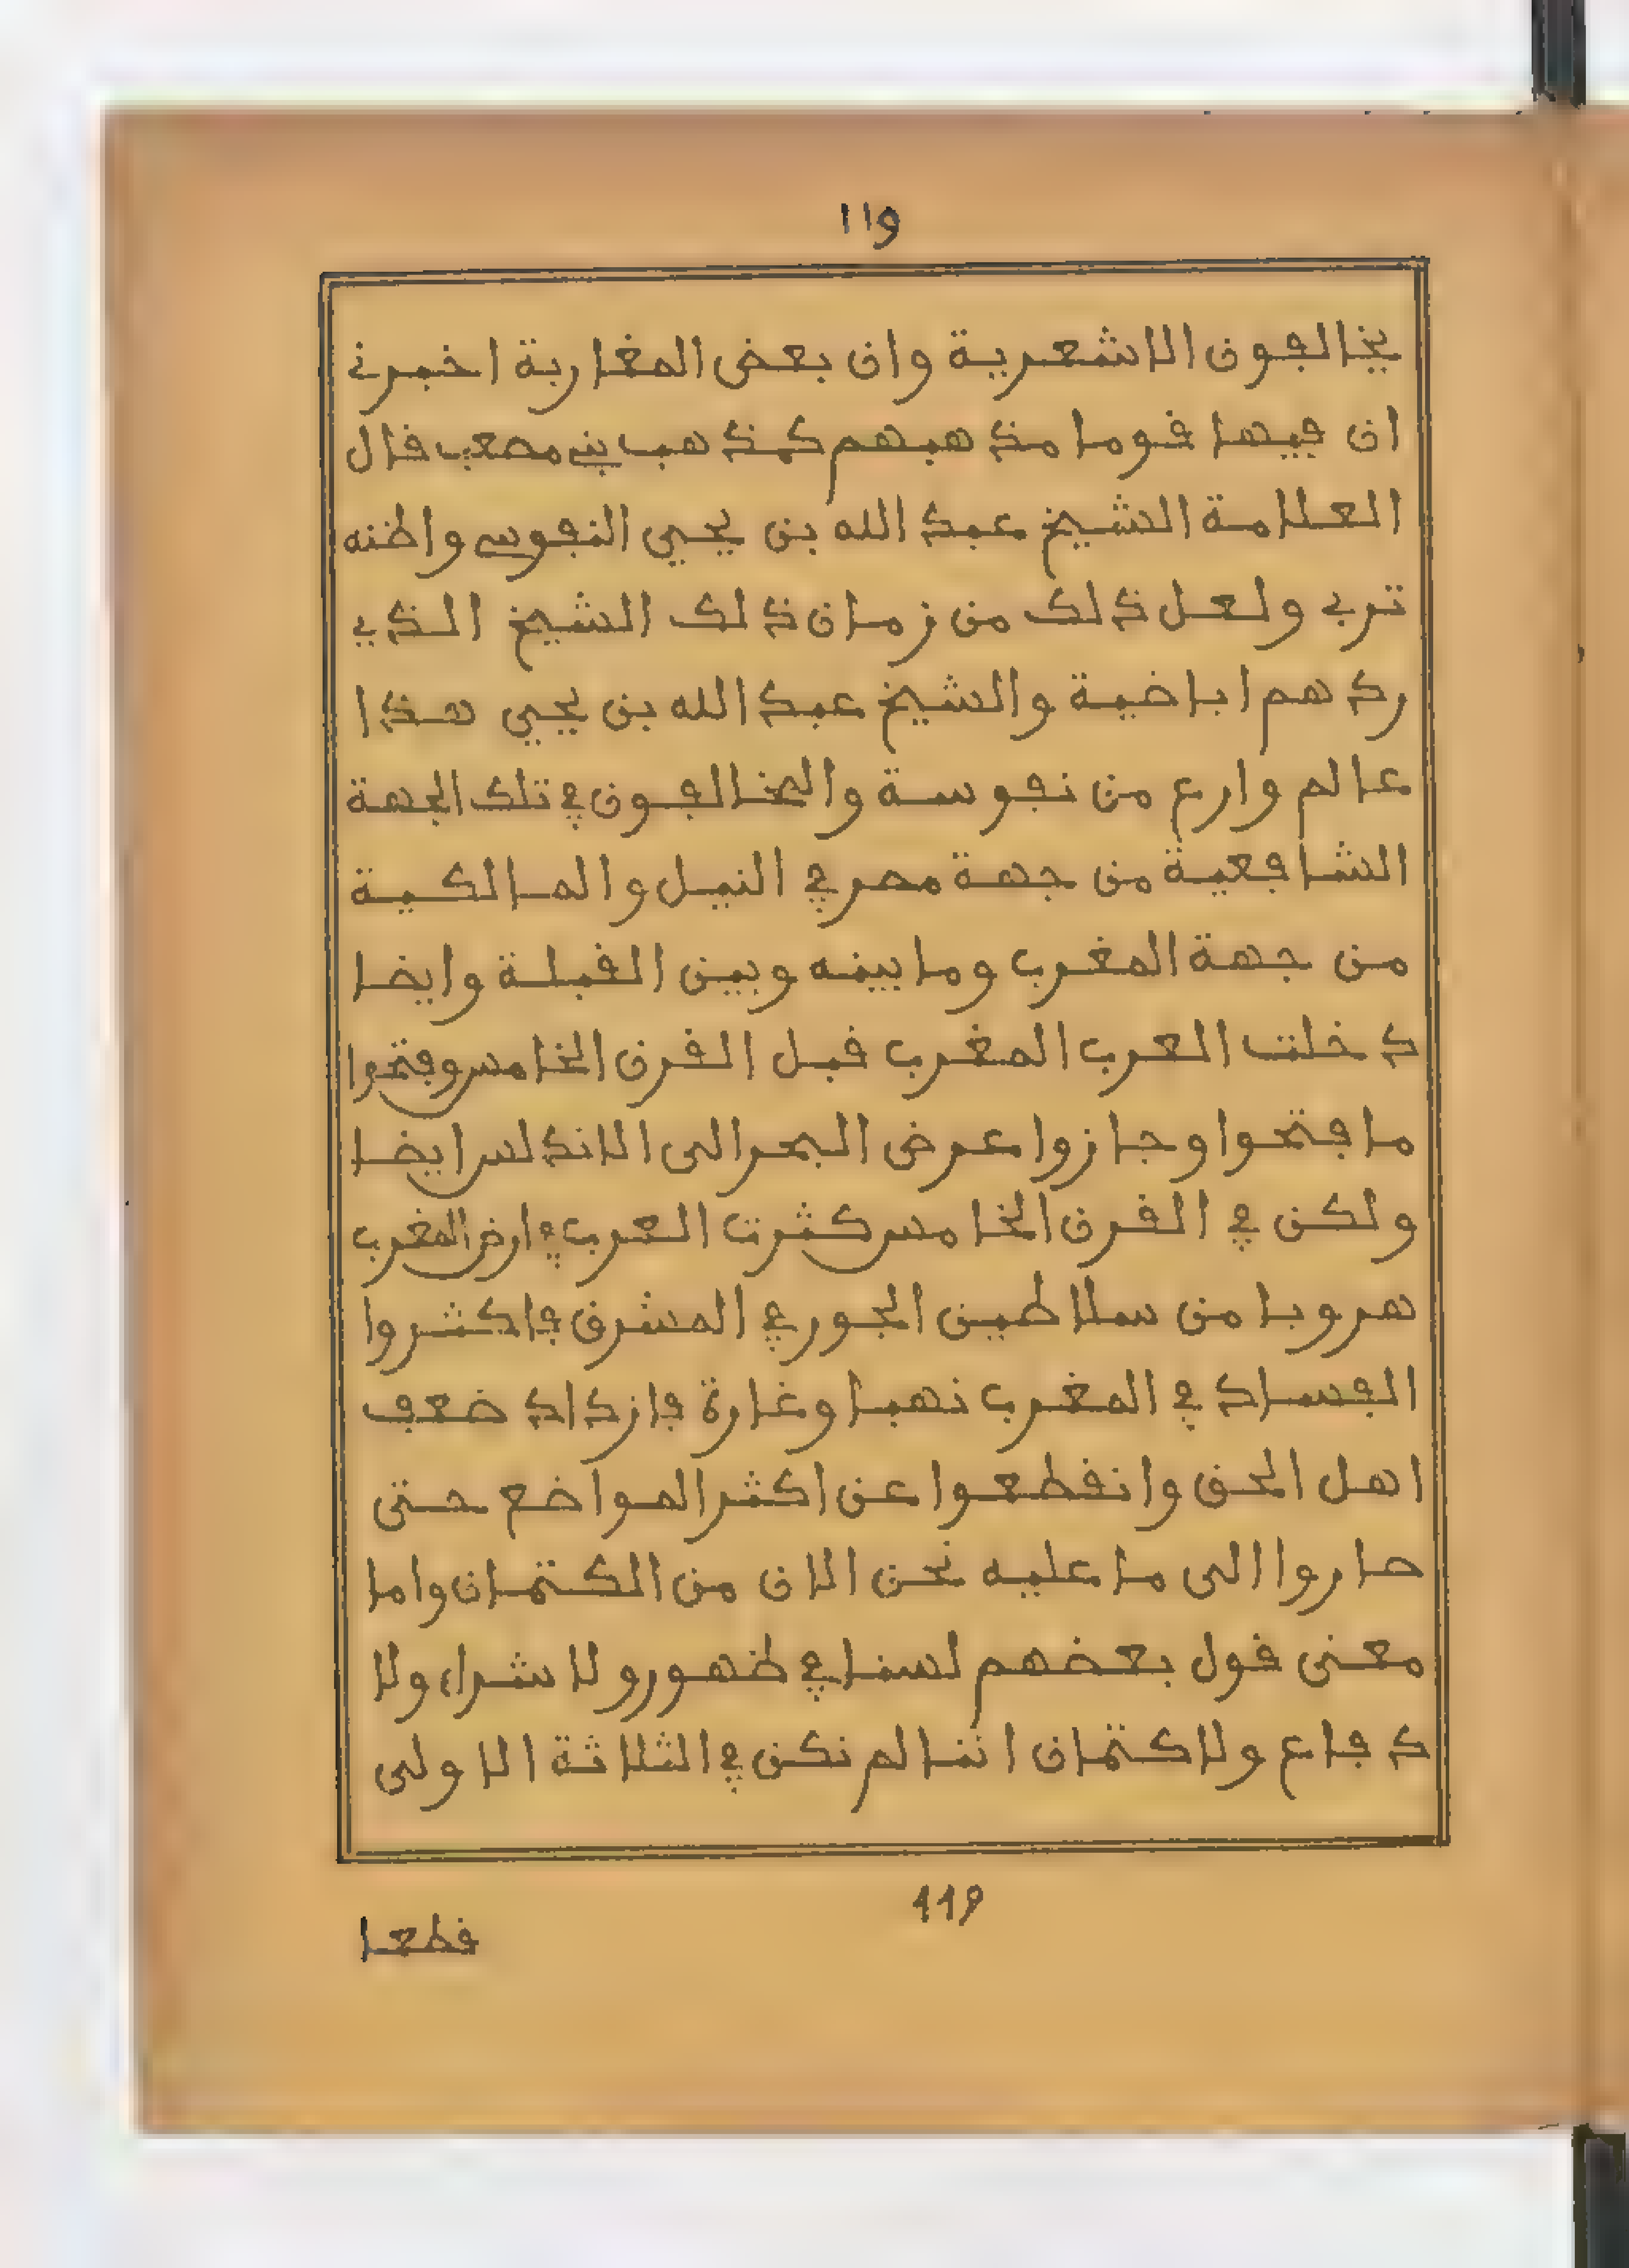 ١١٩
يخالفون الاشعرية وان بعض المغاربة اخبرني
ان فيها قوما مذهبهم كمذهب بني مصعب قال
العلامة الشيخ عبد الله بن يحيى النفوسي واظنه
تربي ولعل ذلك من زمان ذلك الشيخ الذي
ردهم اباضية والشيخ عبد الله بن يحيى هذا
عالم وارع من نفوسة والمخالفون في تلك الجهة
الشافعية من جهة مصر في النيل والمالكية
من جهة المغرب وما بينه وبين القبلة وايضا
دخلت العرب المغرب قبل القرن الخامس وفتحوا
ما فتحوا وجازوا عرض البحر الى الاندلس ايضا
ولكن في القرن الخامس كثرت العرب في ارض المغرب
هروبا من سلاطين الجور في المشرق فاكثروا
الفساد في المغرب نهبا وغارة فازداد ضعف
اهل الحق وانقطعوا عن اكثر المواضع حتى
صاروا الى ما عليه نحن الان من الكتمان واما
معنى قول بعضهم لسنا في ظهور ولا شراء ولا
دفاع ولا كتمان اننا لم نكن في الثلاثة الاولى
119
قطعا